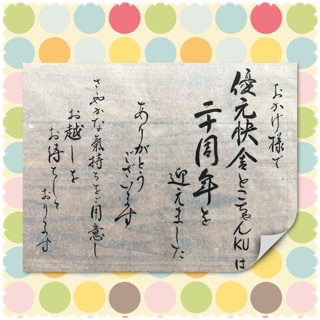 おかげ様で
優元快舎とこちゃんKUは
二十周年を
迎えました
ありがとう
ございます
ささやかな気持ちをご用意し
お越しを
お待ちして
おります